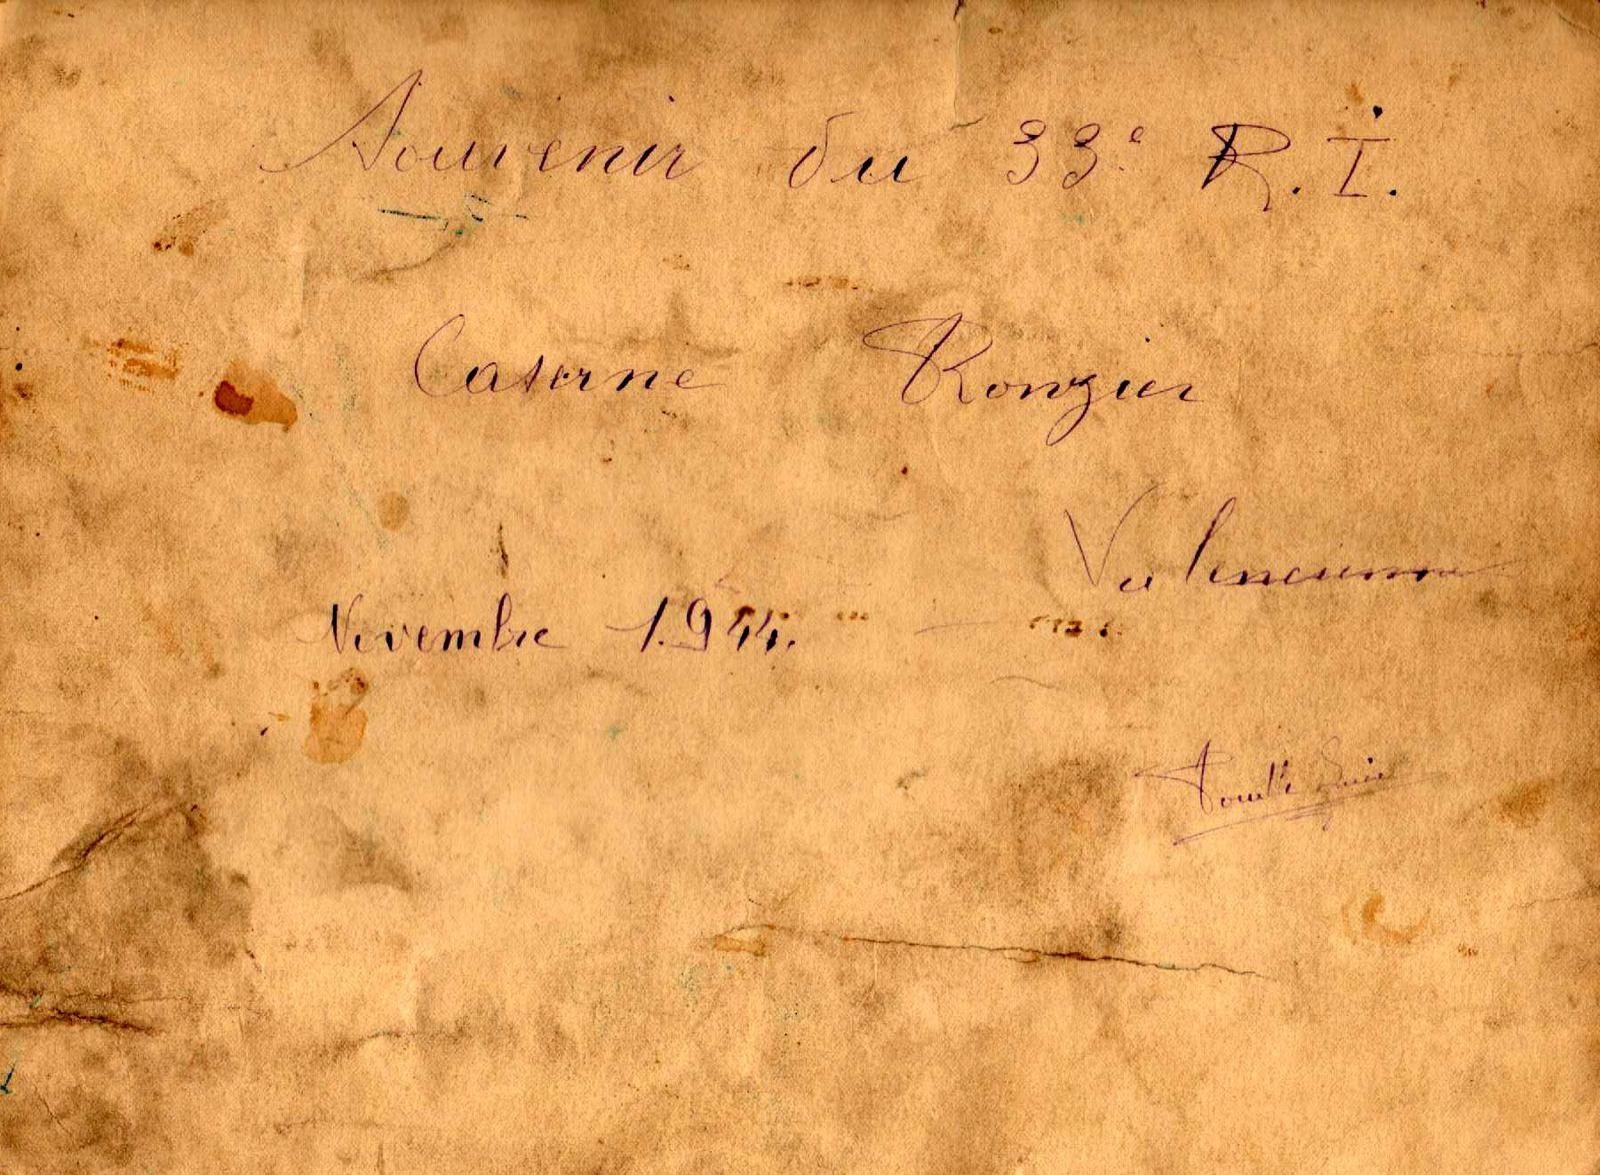 Souvenir du 33e R.I.
Caserne Ronzier
Valenciennes
Novembre 1.944.